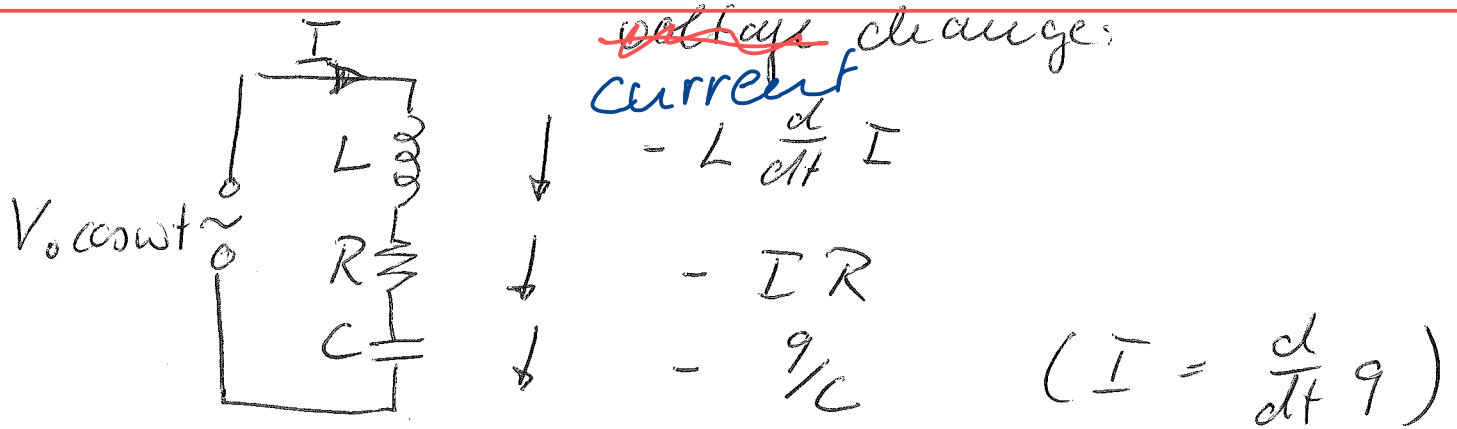 I voltage change:
current
L - L d/dt I
V₀ cos ωt ~
R - I R
C - q/C ( I = d/dt q )